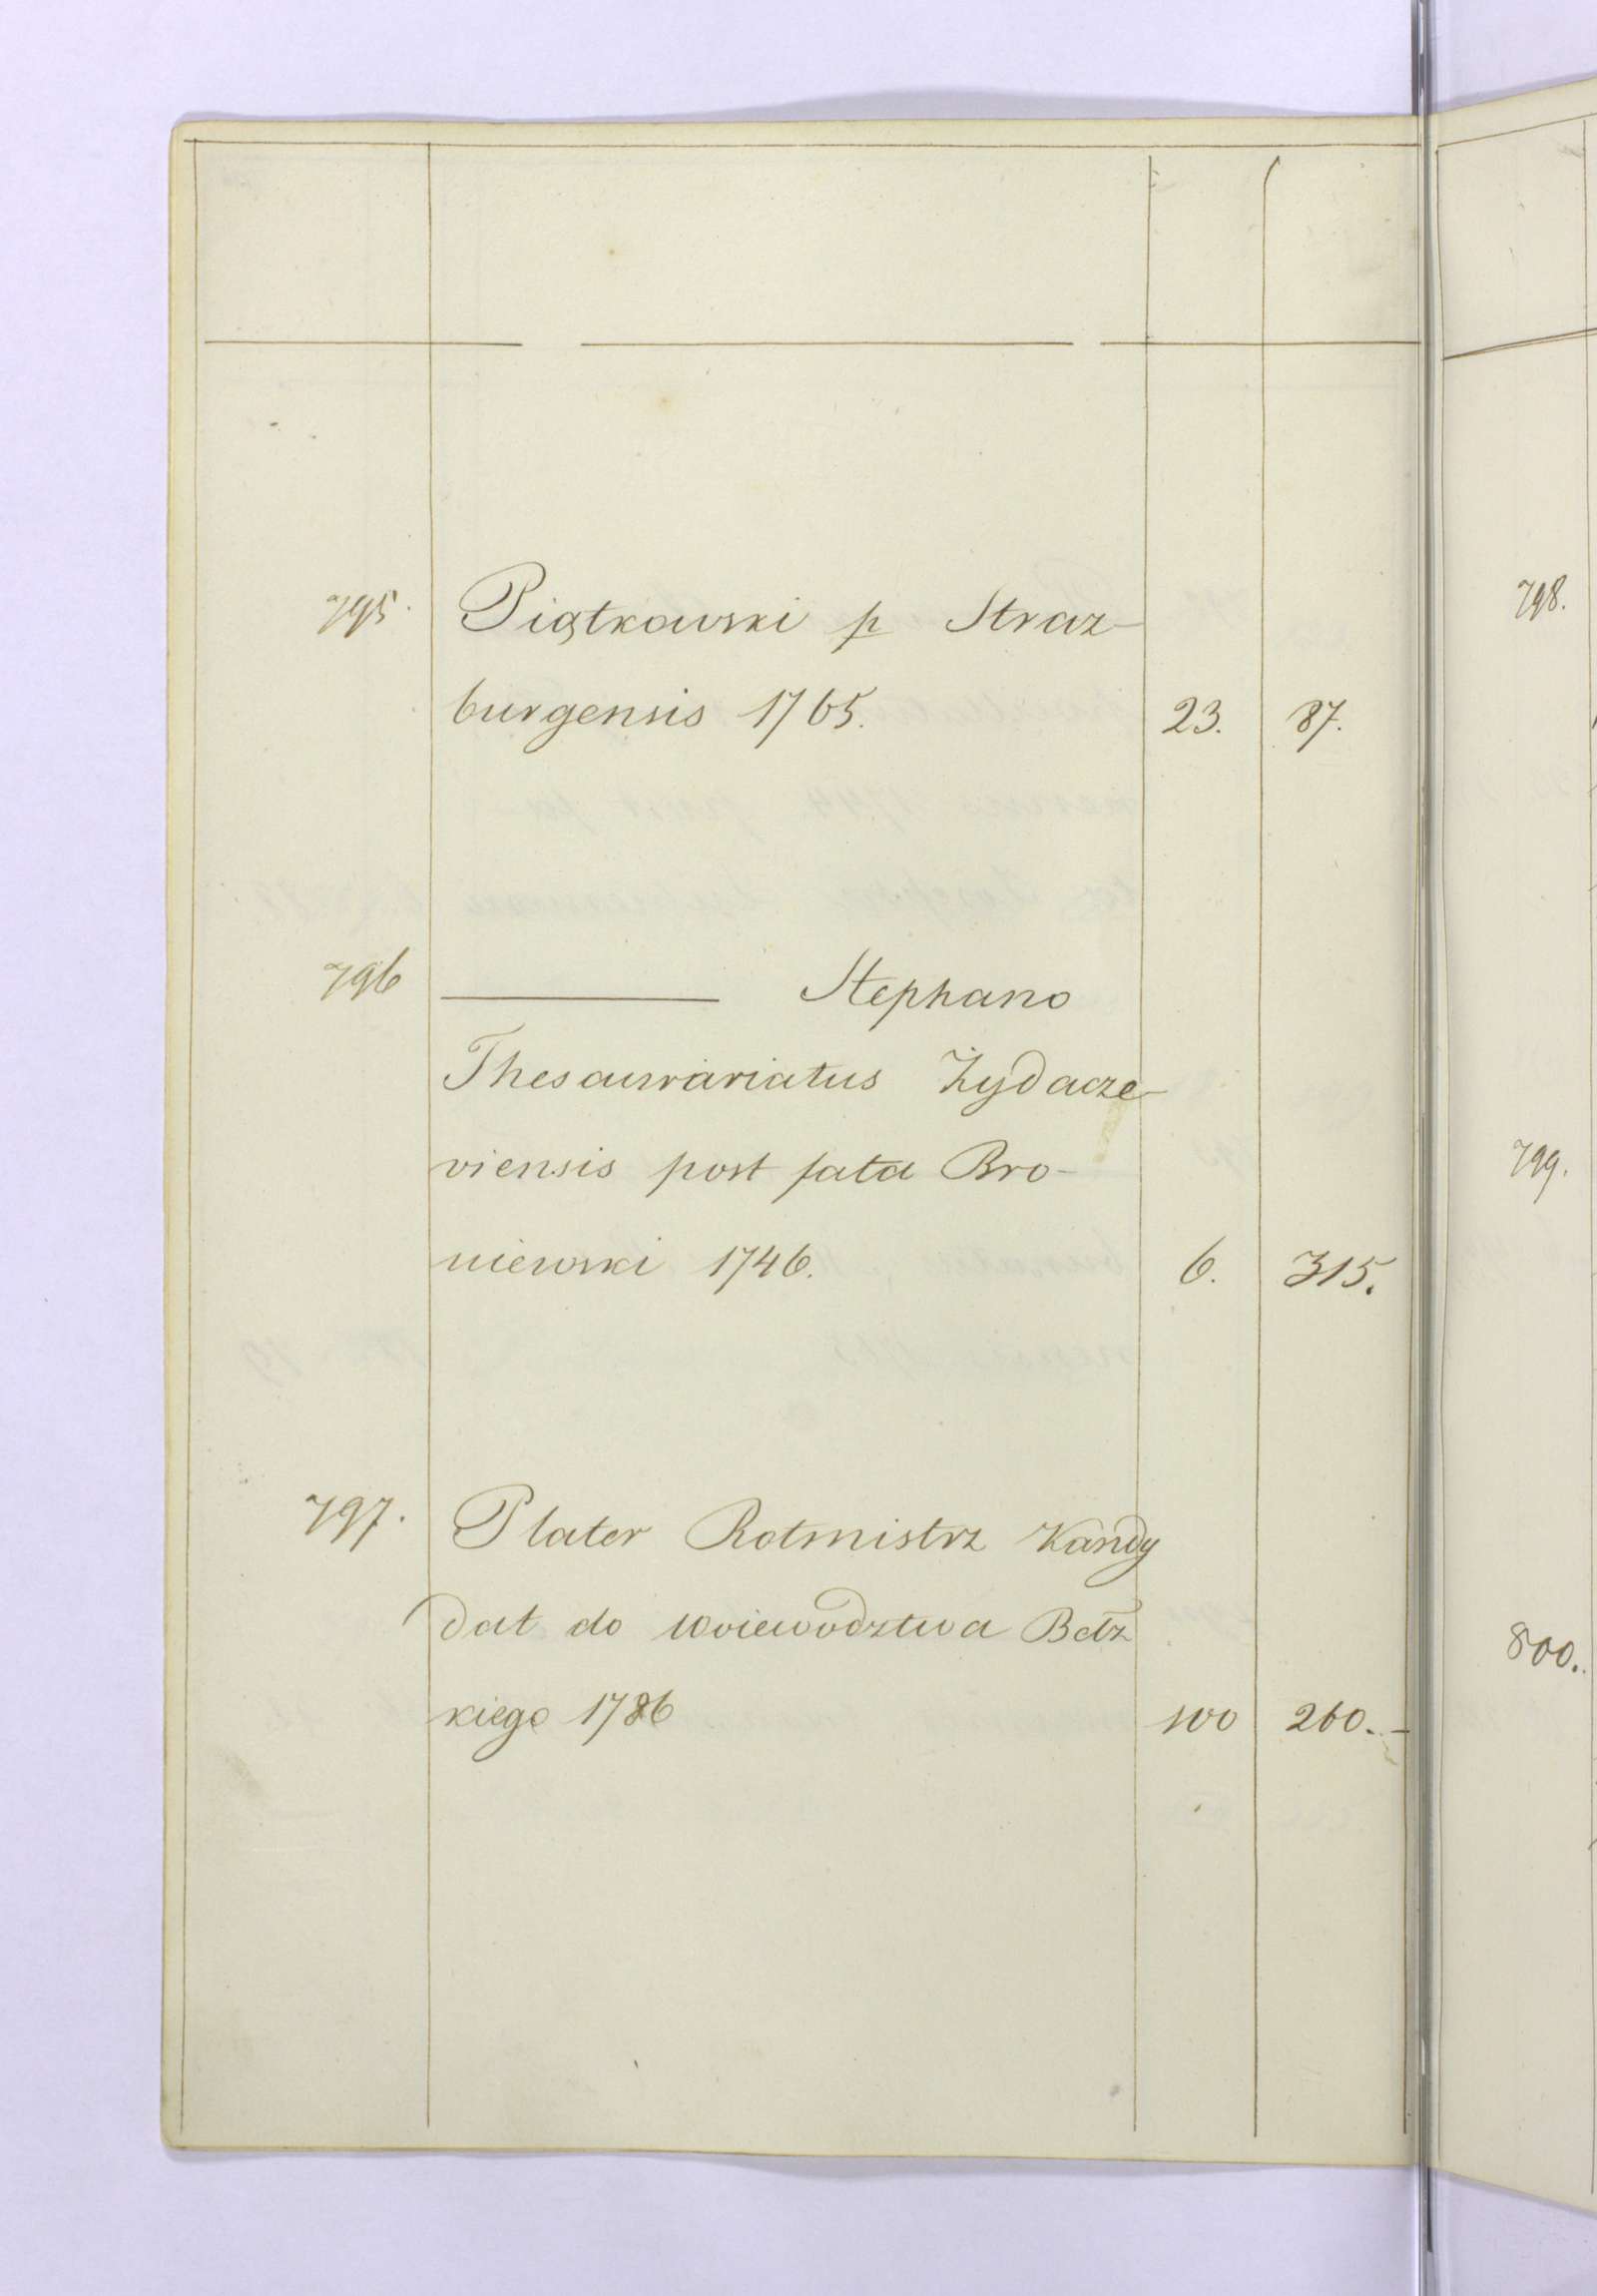 795. Piątkowski p Straz-
burgensis 1765. 23. 87.
796 ——— Stephano
Thesaurariatus Żydacze-
viensis post fata Bro-
niewski 1746. 6. 315.
797. Plater Rotmistrz Kandy
dat do woiewodztwa Bełz
kiego 1786 100 260.-
798.
799.
800.